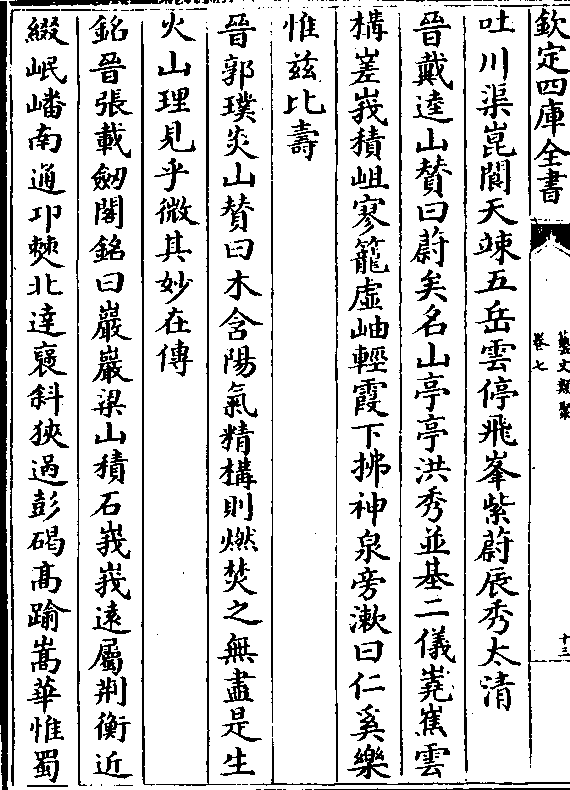 欽定四庫全書
藝文類聚
卷七
十三
吐川渠崑閬天竦五岳雲停飛峯紫蔚辰秀太清
晉戴逵山贊曰蔚矣名山亭亭洪秀並基二儀嶤嶕雲
構嵳峩積岨寥籠虛岫輕霞下拂神泉旁漱曰仁奚樂
惟茲比壽
晉郭璞炎山贊曰木含陽氣精構則燃焚之無盡是生
火山理見乎微其妙在傳
銘晉張載劒閣銘曰巖巖梁山積石峩峩遠屬荆衡近
綴岷嶓南通卭僰北達襃斜狹過彭碣髙踰嵩華惟蜀